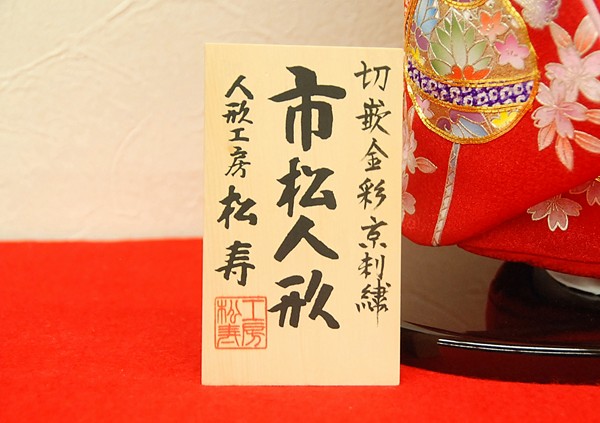 切嵌金彩京刺繍
市松人形
人形工房 松寿
工房
松寿